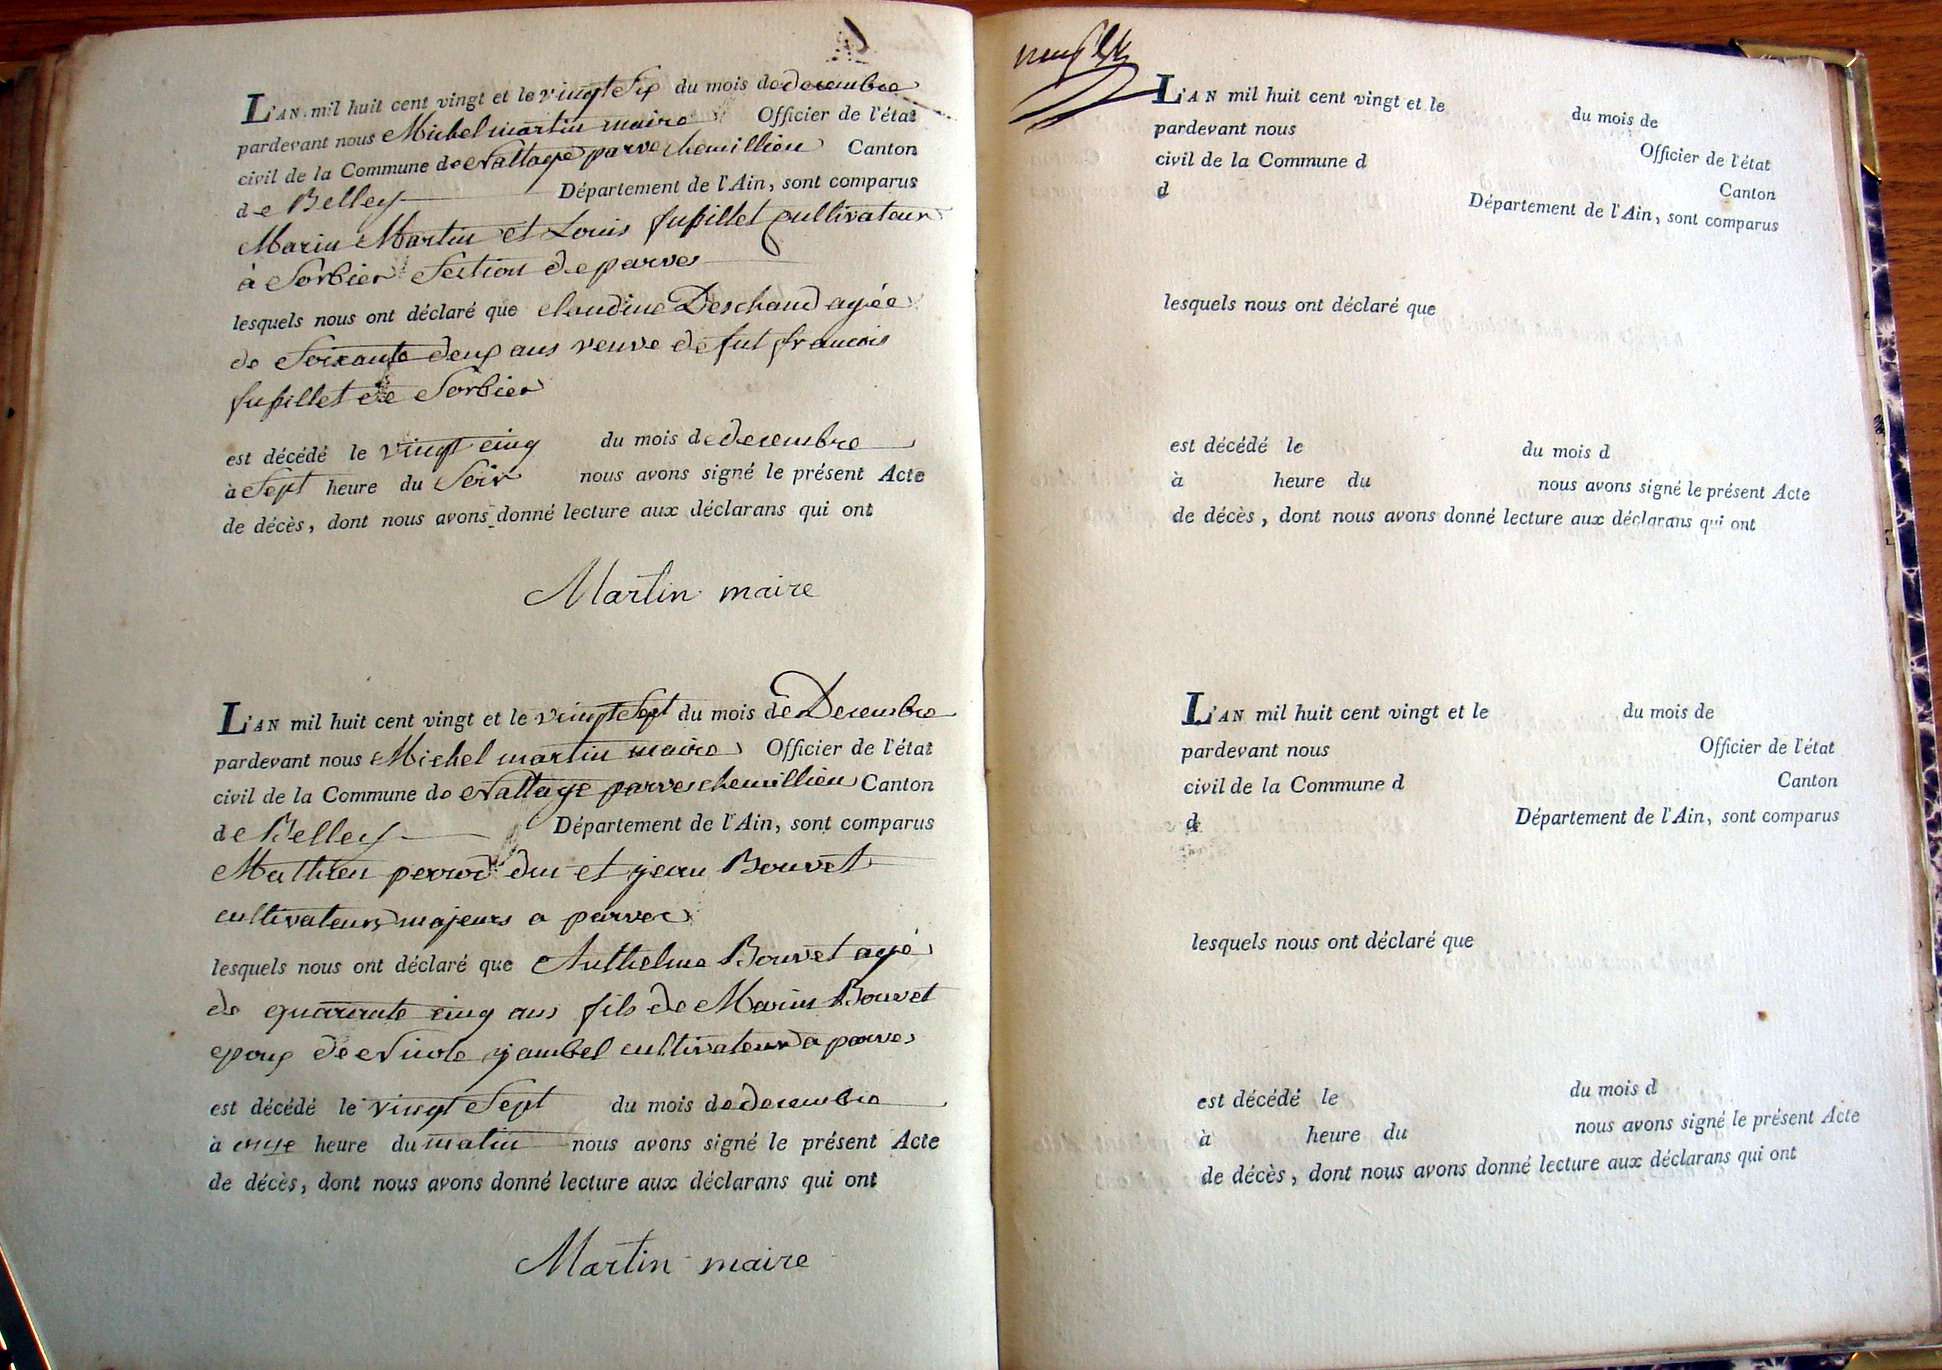 L'AN mil huit cent vingt et le vingt Six du mois de decembre
pardevant nous Michel martin maire Officier de l'état
civil de la Commune de Nattage parve chemillieu Canton
de Belley Département de l'Ain, sont comparus
Marin Martin et Louis fusillet cultivateur
à Sorbier Section de parves
lesquels nous ont déclaré que claudine Deschand agée
de Soixante deux ans veuve de fut francois
fusillet de Sorbier
est décédé le vingt cinq du mois de decembre
à Sept heure du Soir nous avons signé le présent Acte
de décès, dont nous avons donné lecture aux déclarans qui ont
Martin maire
L'AN mil huit cent vingt et le vingt Sept du mois de Decembre
pardevant nous Michel martin maire Officier de l'état
civil de la Commune de Nattage parves chemillieu Canton
de Belley Département de l'Ain, sont comparus
Mathieu perrod et jean Bouvet
cultivateurs majeurs a parves
lesquels nous ont déclaré que Anthelme Bouvet agé
de quarante cinq ans fils de Marin Bouvet
epoux de Nicole jambel cultivateur a parves
est décédé le vingt Sept du mois de decembre
à onze heure du matin nous avons signé le présent Acte
de décès, dont nous avons donné lecture aux déclarans qui ont
Martin maire
L'AN mil huit cent vingt et le du mois de
pardevant nous Officier de l'état
civil de la Commune d Canton
d Département de l'Ain, sont comparus
lesquels nous ont déclaré que
est décédé le du mois d
à heure du nous avons signé le présent Acte
de décès, dont nous avons donné lecture aux déclarans qui ont
L'AN mil huit cent vingt et le du mois de
pardevant nous Officier de l'état
civil de la Commune d Canton
d Département de l'Ain, sont comparus
lesquels nous ont déclaré que
est décédé le du mois d
à heure du nous avons signé le présent Acte
de décès, dont nous avons donné lecture aux déclarans qui ont